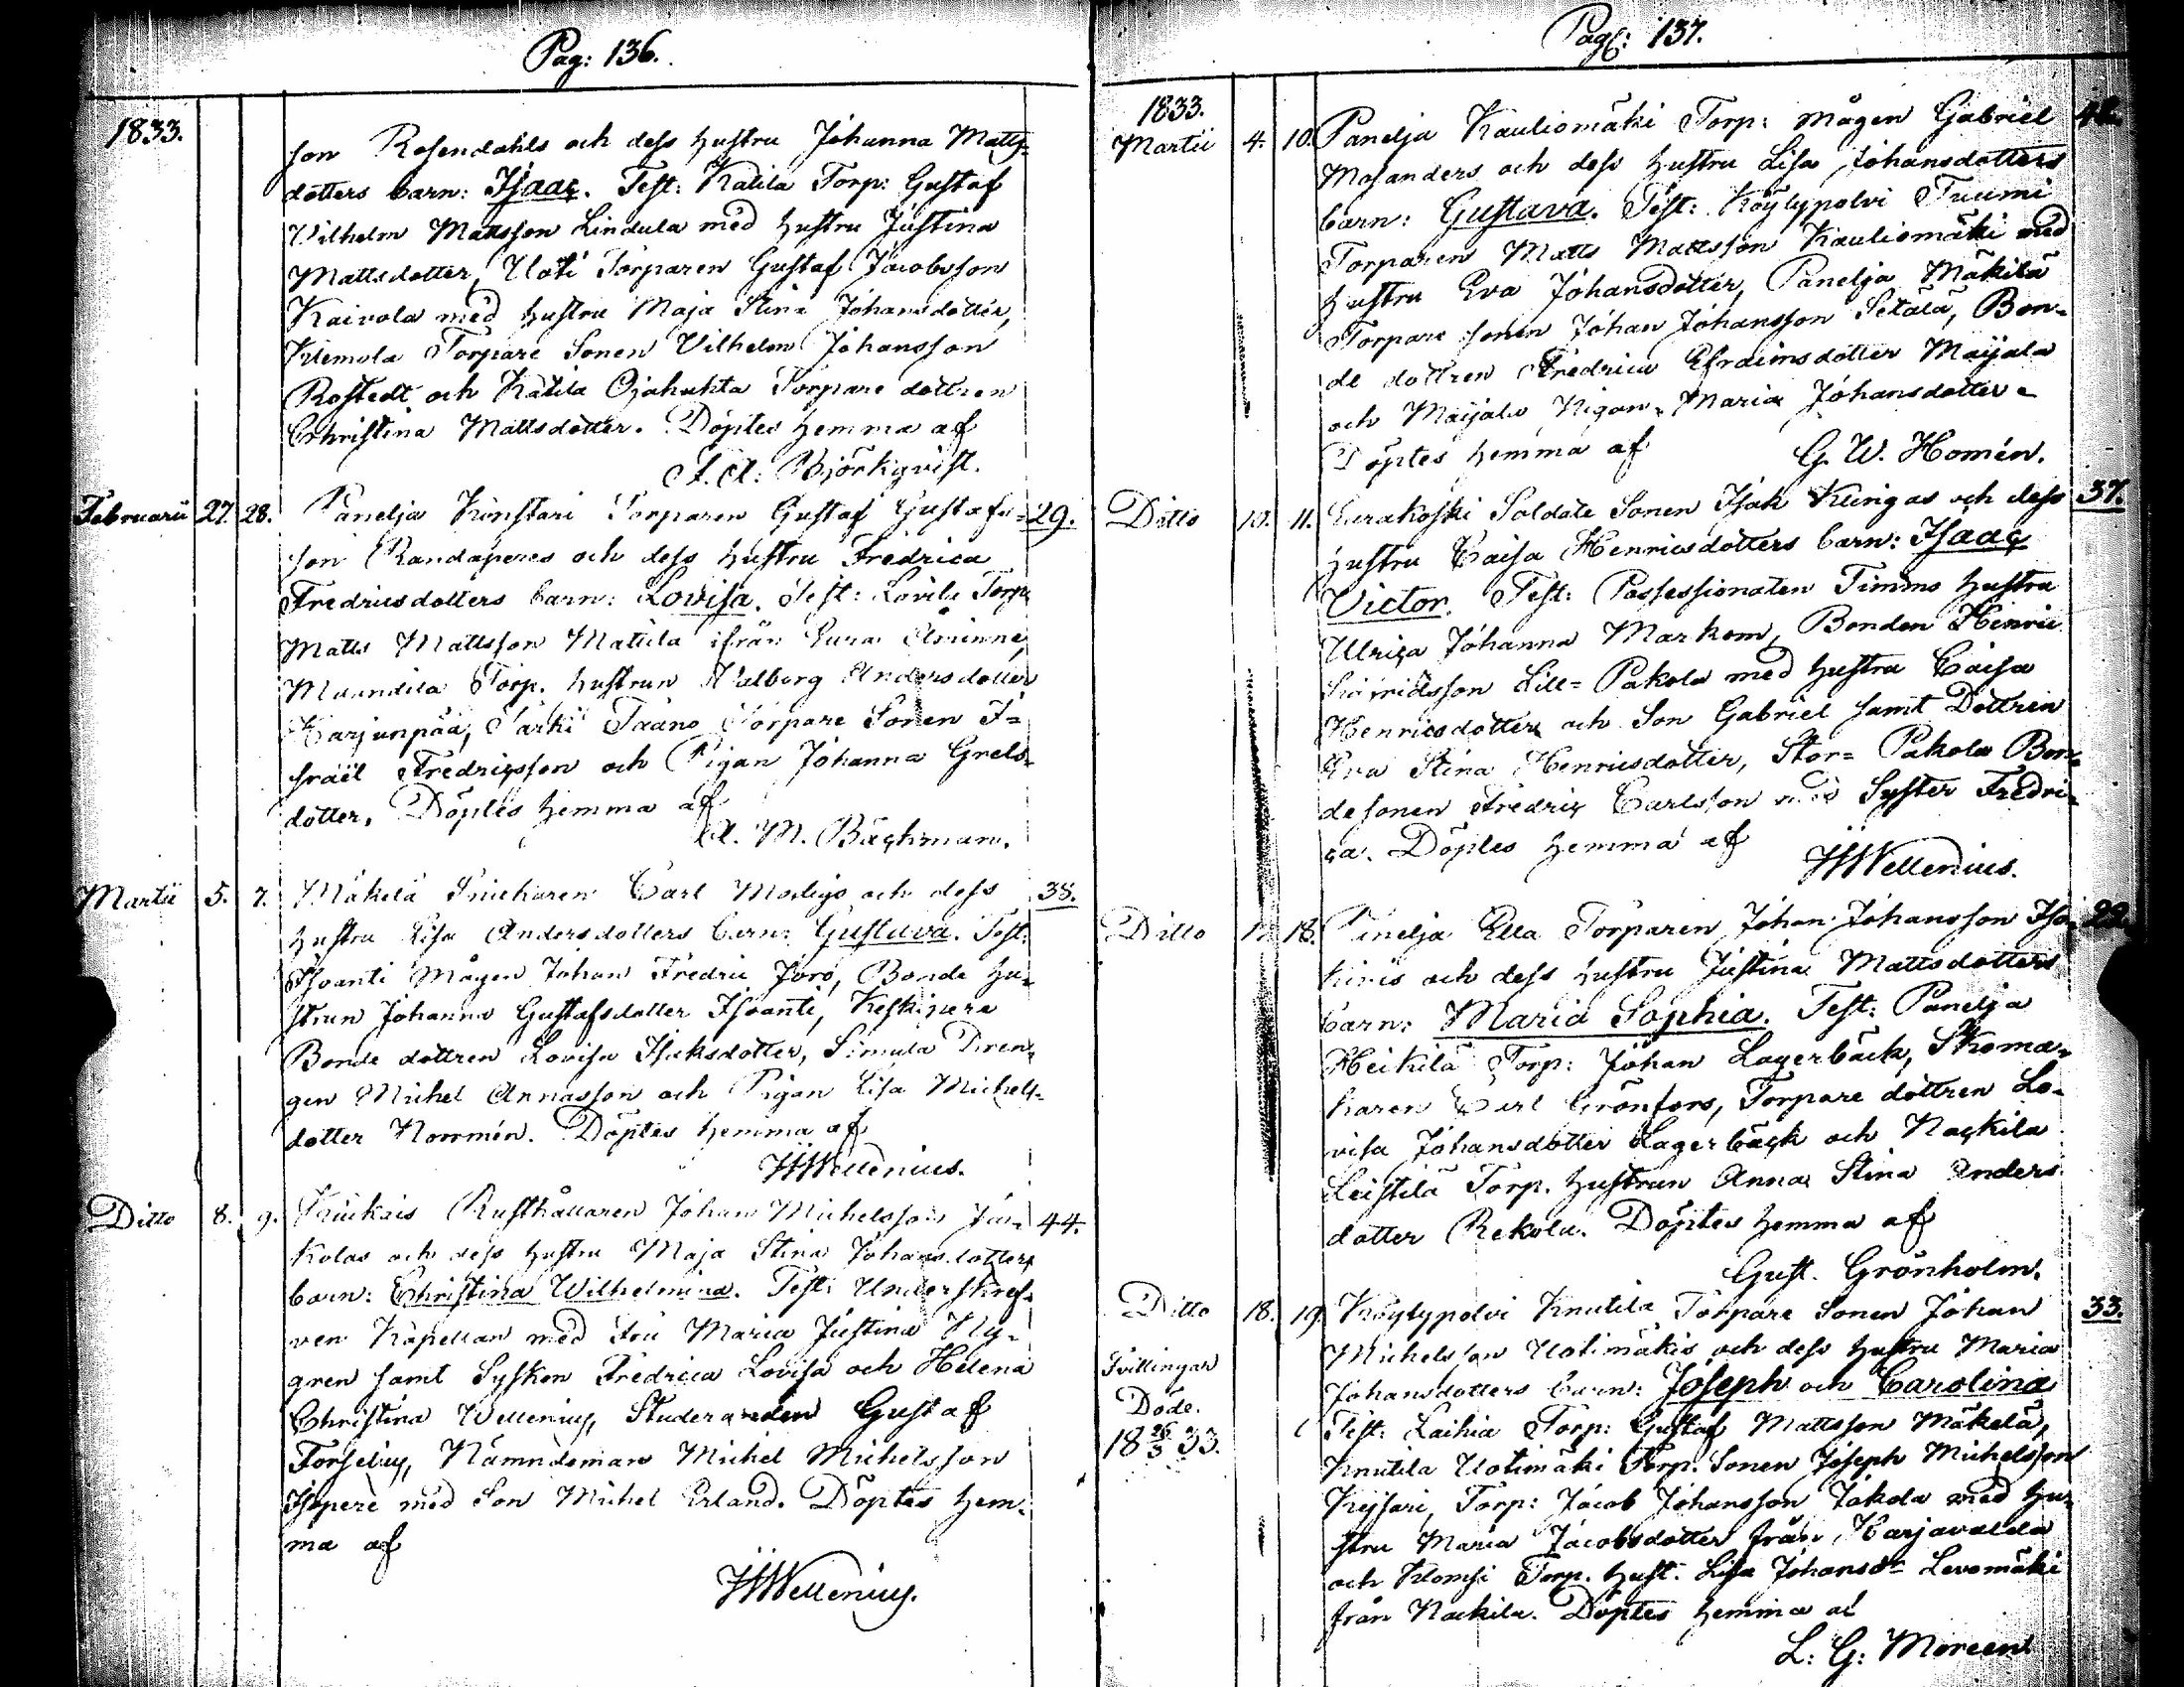 Pag: 136.
1833.
son Rosendahls och dess hustru Johanna Matts-
dotters barn: Isaac. Test: Katila Torp: Gustaf
Vilhelm Mattsson Lindula med hustru Justina
Mattsdotter, Uoti Torparen Gustaf Jacobsson
Kaivola med hustru Maja Stina Johansdotter,
Klemola Torpare Sonen Vilhelm Johansson
Rostedt och Katila Ojahuhta Torpare dottren
Christina Mattsdotter. Döptes hemma af
A. A. Björkqvist.
Februarii 27. 28. Panelja Kunstari Torparen Gustaf Gustafs- 29.
son Randaperes och dess hustru Fredrica
Fredricsdotters barn: Lovisa. Test: Lavila Torp.
Matts Mattsson Mattila ifrån Eura Åminne,
Maundila Torp. hustrun Valborg Andersdotter
Karjunpää, Särki Torpare Sonen I-
srael Fredricsson och Pigan Johanna Grels-
dotter. Döptes hemma af
A. M. Bäckman.
Martii 5. 7. Mäkelä Snickaren Carl och dess 38.
hustru Lisa Andersdotters barn: Gustava. Test:
Isoanti Mågen Johan Fredric Joro, Bonde hu-
strun Johanna Gustafsdotter Isoanti, Keskipere
Bonde dottren Lovisa Isaksdotter, Simula Dren-
gen Michel Annasson och Pigan Lisa Michels-
dotter Norrmén. Döptes hemma af
JHWellenius.
Ditto 8. 9. Kiukais Rusthållaren Johan Michelsson Jaa- 44.
kolas och dess hustru Maja Stina Johansdotters
barn: Christina Wilhelmina. Test: Underskref-
ven Kapellan med Fru Maria Justina Ny-
gren samt Syskon Fredrica Lovisa och Helena
Christina Wellenius, Studeranden Gustaf
Forselius, Nämndeman Michel Michelsson
Isopere med Son Michel Erland. Döptes hem-
ma af
JHWellenius.
Pag: 137.
1833.
Martii 4. 10. Panelja Kauliomäki Torp: mågen Gabriel
Mosanders och dess hustru Lisa Johansdotters
barn: Gustava. Test: Köylypolvi Tuumi
Torparen Matts Mattsson Kauliomäki med
hustru Eva Johansdotter, Panelja Mäkilä
Torpare sonen Johan Johansson Setälä, Bon-
de dottren Fredrica Efraimsdotter Maijala
och Maijala Pigan Maria Johansdotter.
Döptes hemma af
G. W. Homén.
Ditto 10. 11. Eurakoski Soldate Sonen Isak Klingas och dess 37.
hustru Caisa Henricsdotters barn: Isaac
Victor. Test: Possessionaten Timms hustru
Ulrica Johanna Markom, Bonden Henric
Sigfridsson Lill-Pakola med hustru Caisa
Henricsdotter och Son Gabriel samt Dottren
Eva Stina Henricsdotter, Stor-Pakola Bon-
desonen Fredric Carlsson med Syster Fredri-
ca. Döptes hemma af
JHWellenius.
Ditto 18. Panelja Ella Torparen Johan Johansson Iso- 22.
och dess hustru Justina Mattsdotters
barn: Maria Sophia. Test: Panelja
Heikilä Torp: Johan Lagerbäck, Skoma-
karen Carl Grönfors, Torpare dottren Lo-
visa Johansdotter Lagerbäck och Nackila
Leistilä Torp. hustrun Anna Stina Anders
dotter Rekola. Döptes hemma af
Gust. Grönholm.
Ditto 18. 19. Köylypolvi Knutila Torpare Sonen Johan 33.
Michelsson Uotimäkis och dess hustru Maria
Tvillingar
Johansdotters barn: Joseph och Carolina
Döde.
Test: Laihia Torp: Gustaf Mattsson Mäkelä,
18 26/3 33.
Knutila Uotimäki Torp. Sonen Joseph Michelsson
Keysari, Torp: Jacob Johansson Jakola med hu-
stru Maria Jacobsdotter från Harjavalda
och Klomsi Torp. hust. Lisa Johansdr Levomäki
från Nackila. Döptes hemma af
L: G: Moreen